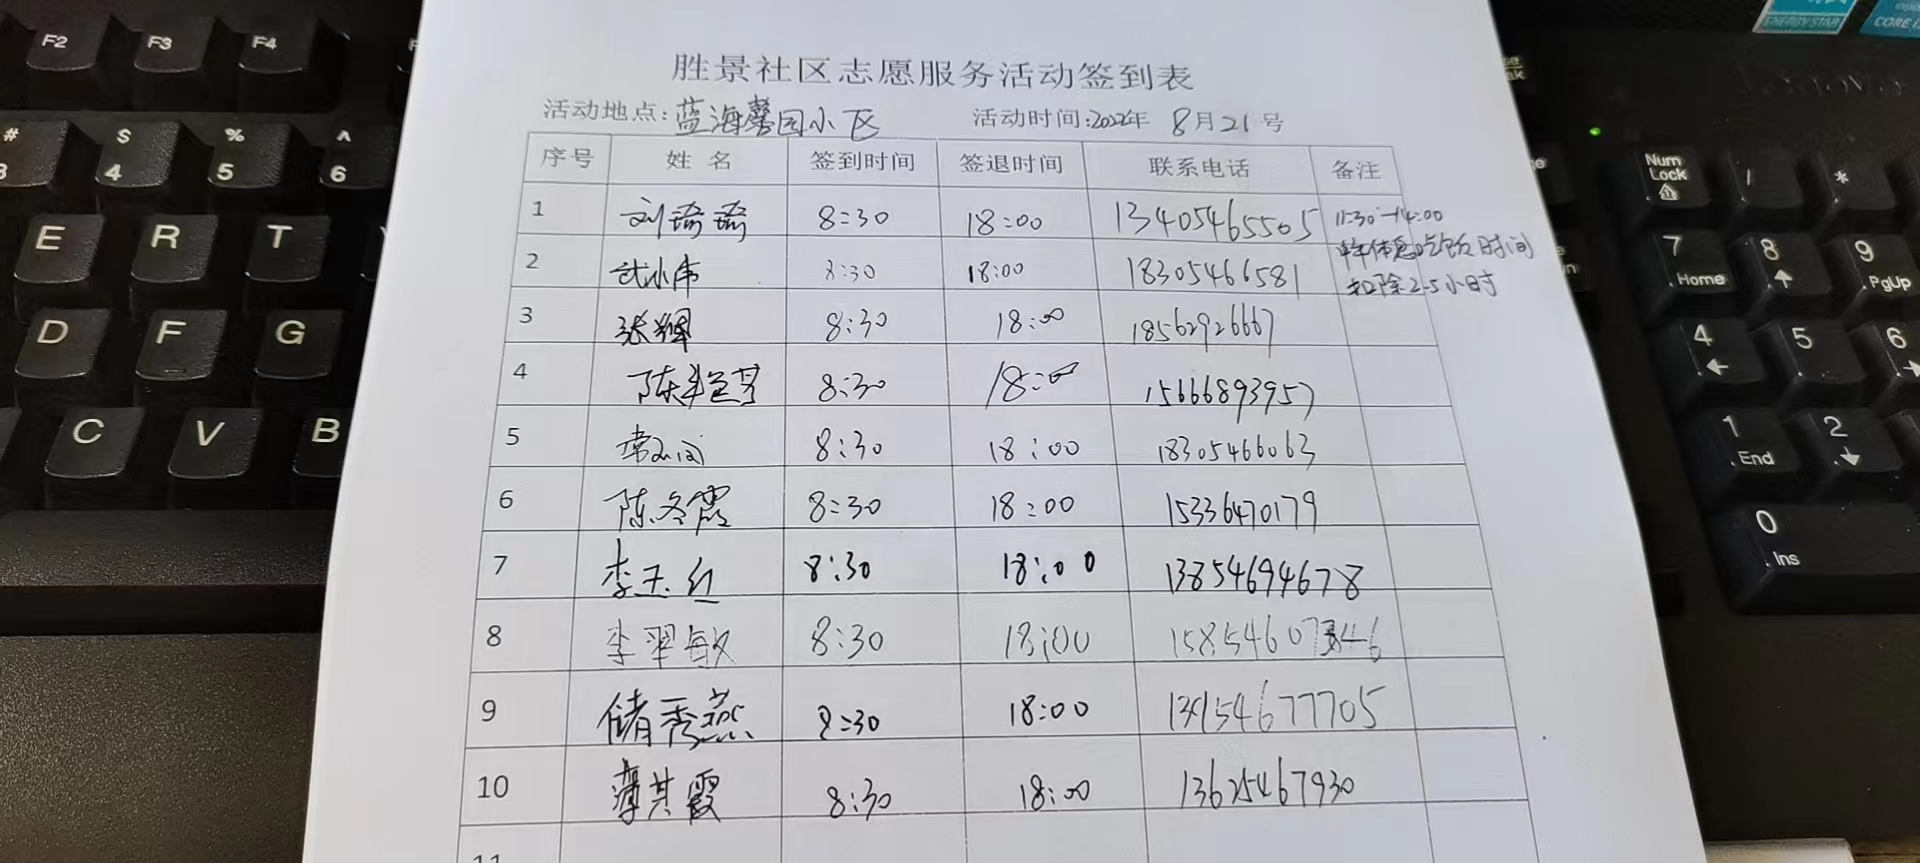 胜景社区志愿服务活动签到表
活动地点:蓝海馨园小区 活动时间:2022年 8月21号
序号 姓名 签到时间 签退时间 联系电话 备注
1 刘琦琦 8:30 18:00 13405465505 11:30-14:00
中午休息吃饭时间
扣除2.5小时
2 武小伟 8:30 18:00 18305466581
3 张 8:30 18:00 18562926667
4 陈 8:30 18:00 15666893957
5 常 8:30 18:00 18305466063
6 陈冬霞 8:30 18:00 15336470179
7 李玉红 8:30 18:00 13854694678
8 李翠敏 8:30 18:00
9 储秀燕 8:30 18:00 13954677705
10 薄其霞 8:30 18:00 13625467930
11
F2 F3 F4
# 3 $ 4 % 5 ^ 6
E R T
D F G
C V B
ENERGY STAR
CORE
Num Lock / *
7 Home 8 9 PgUp
4 5 6
1 End 2
0 Ins